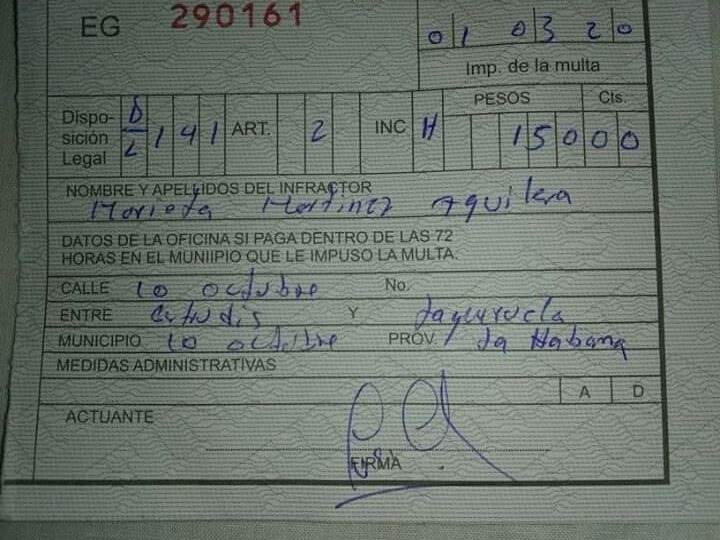 EG 290161
01 03 20
Imp. de la multa
Dispo-sición Legal D/L 141 ART. 2 INC H PESOS Cts. 15000
NOMBRE Y APELLIDOS DEL INFRACTOR
Marieta Martinez Aguilera
DATOS DE LA OFICINA SI PAGA DENTRO DE LAS 72
HORAS EN EL MUNIIPIO QUE LE IMPUSO LA MULTA.
CALLE 10 octubre No.
ENTRE Y
MUNICIPIO 10 octubre PROV. La Habana
MEDIDAS ADMINISTRATIVAS
A D
ACTUANTE
FIRMA